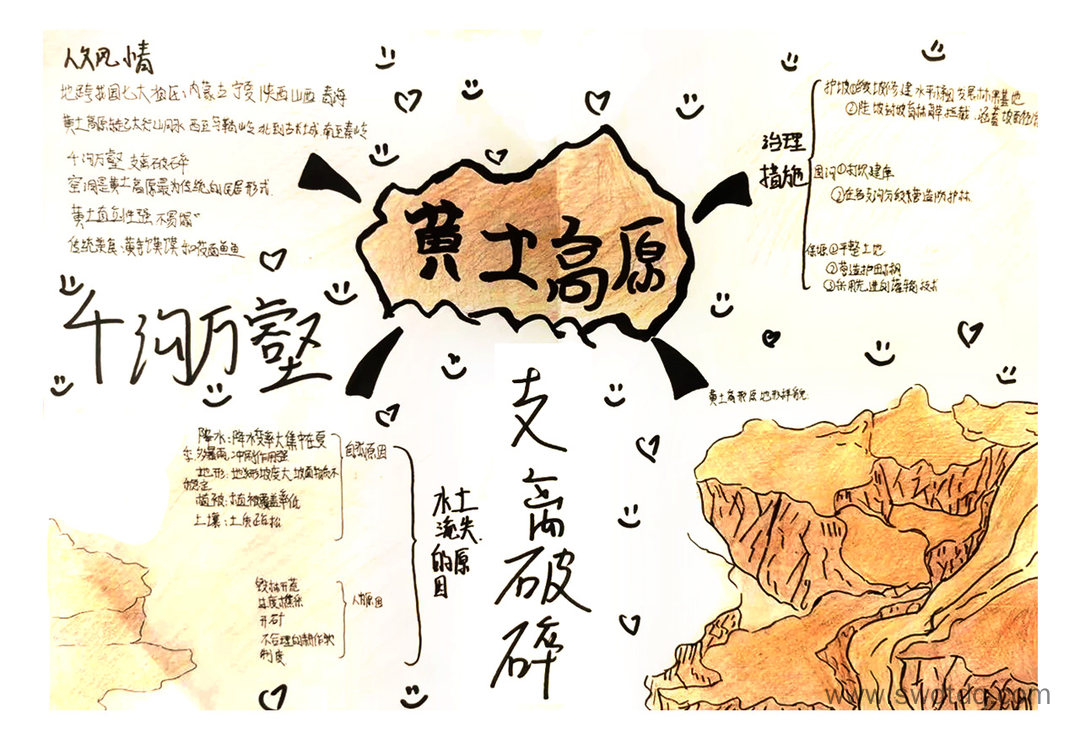 人文风情
地跨我国七大省区:内蒙古 宁夏 陕西 山西 青海
黄土高原东起太行山 西至 北到古长城 南至秦岭
千沟万壑 支离破碎
窑洞是黄土高原最为传统的民居形式.
黄土直立性强 不易塌"
传统美食:黄 馍馍 如莜面鱼鱼
千沟万壑
黄土高原
治理
措施
护坡①缓坡修建水平梯田 发展林果基地
②陡坡
固沟①打坝建库
②在各支沟分段营造防护林
保塬①平整土地
②营造护田林网
③采用先进的灌溉技术
黄土高原地形样貌
支离破碎
水土
流失
的原
因
自然原因
降水:降水变率大集中在夏
季,多暴雨,冲刷作用强
地形:地形坡度大,坡面物质不
稳定
植被:植被覆盖率低
土壤:土质疏松
人为原因
毁林开荒
过度樵采
开矿
不合理的耕作
制度
www.swdtdq.com